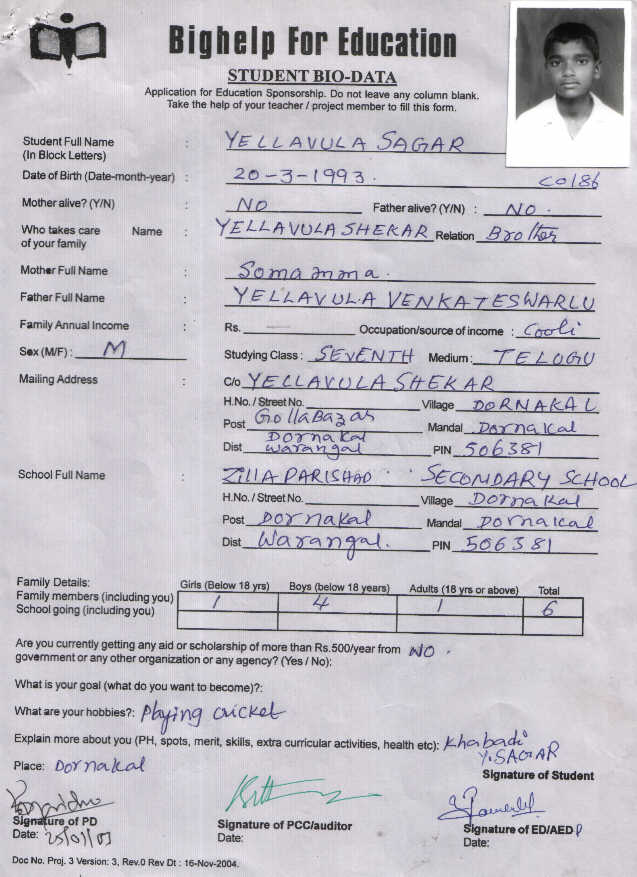 Bighelp For Education
STUDENT BIO-DATA
Application for Education Sponsorship. Do not leave any column blank.
Take the help of your teacher / project member to fill this form.
Student Full Name : YELLAVULA SAGAR
(In Block Letters)
Date of Birth (Date-month-year) : 20-3-1993. C0186
Mother alive? (Y/N) : NO Father alive? (Y/N) : NO.
Who takes care Name : YELLAVULA SHEKAR Relation Brother
of your family
Mother Full Name : Somamma.
Father Full Name : YELLAVULA VENKATESWARLU
Family Annual Income : Rs. Occupation/source of income : Cooli
Sex (M/F) : M Studying Class : SEVENTH Medium : TELOGU
Mailing Address : C/o YELLAVULA SHEKAR
H.No. / Street No. Village DORNAKAL
Post Gollabazar Mandal Dornakal
Dornakal
Dist Warangal PIN 506381
School Full Name : ZILLA PARISHAD SECONDARY SCHOOL
H.No. / Street No. Village Dornakal
Post Dornakal Mandal Dornakal
Dist Warangal. PIN 506381
Family Details: Girls (Below 18 yrs) Boys (below 18 years) Adults (18 yrs or above) Total
Family members (including you) 1 4 1 6
School going (including you)
Are you currently getting any aid or scholarship of more than Rs.500/year from NO.
government or any other organization or any agency? (Yes / No):
What is your goal (what do you want to become)?:
What are your hobbies?: Playing cricket
Explain more about you (PH, spots, merit, skills, extra curricular activities, health etc): Khabadi
Y. SAGAR
Place: Dornakal
Signature of Student
Signature of PD Signature of PCC/auditor Signature of ED/AED
Date: Date: Date:
Doc No. Proj. 3 Version: 3, Rev.0 Rev Dt : 16-Nov-2004.